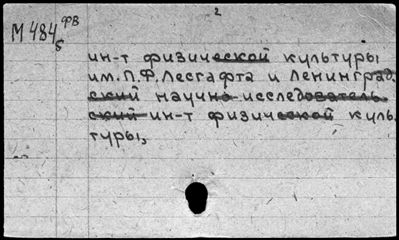 2
М 484 фв
5
ин-т физической культуры
им. П.Ф. Лесгафта и Ленинград.
ский научно-исследователь
ский ин-т физической куль.
туры,